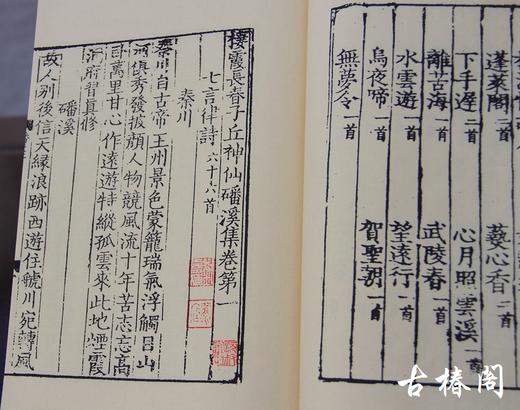 蓬萊閣二首 爇心香二首
下手遲二首 心月照雲溪一首
離苦海一首 武陵春一首
水雲遊一首 望遠行一首
烏夜啼一首 賀聖朝一首
無夢令一首
棲霞長春子丘神仙磻溪集卷第一
七言律詩六十六首
秦川
秦川自古帝王州景色蒙籠瑞氣浮觸目山
河俱秀發披顏人物競風流十年苦志忘高
臥萬里甘心作遠遊特縱孤雲來此地煙霞
洞府習真修
磻溪
故人別後信天緣浪跡西遊住虢川宛轉風
古椿閣